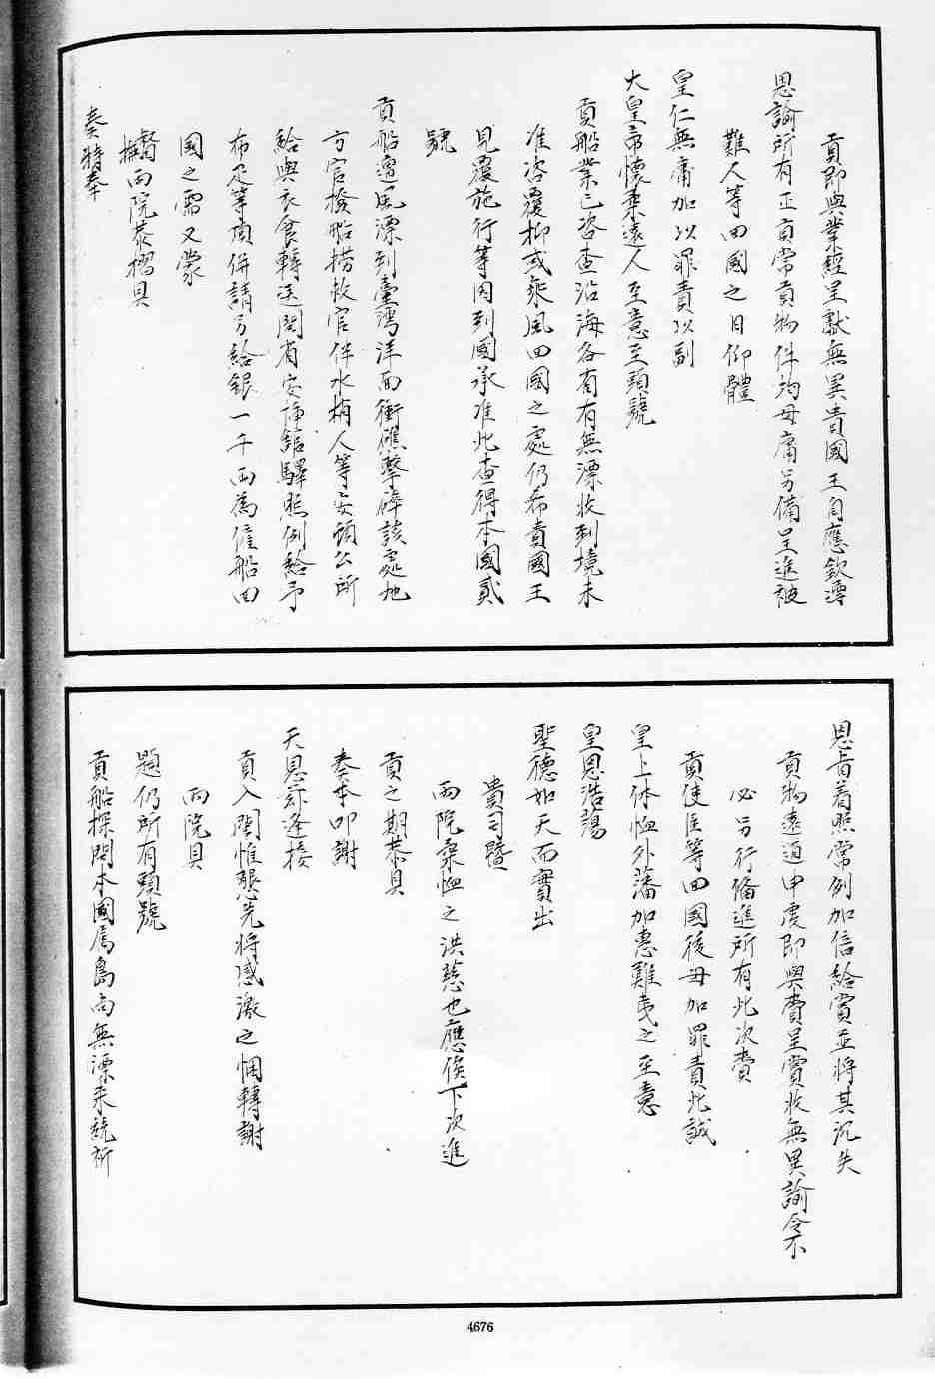 貢即與業經呈獻無異貴國王自應欽遵
恩諭所有正貢常貢物件均毋庸另備呈進被
難人等回國之日仰體
皇仁無庸加以罪責以副
大皇帝懷柔遠人至意至頭號
貢船業已咨查沿海各省有無漂收到境未
准咨覆抑或乘風回國之處仍希貴國王
見覆施行等因到國承准此查得本國貳
號
貢船遭風漂到臺灣洋面衝礁擊碎該處地
方官撥船撈救官伴水梢人等安頓公所
給與衣食轉送閩省安揷館驛照例給予
布疋等項併請另給銀一千兩為僱船回
國之需又蒙
督撫兩院恭摺具
奏特奉
恩旨着照常例加倍給賞並將其沉失
貢物遠道申虔即與賫呈賞收無異諭令不
必另行備進所有此次賫
貢使臣等回國後毋加罪責此誠
皇上体恤外藩加惠難夷之至意
皇恩浩蕩
聖德如天而實出
貴司暨
兩院棄恤之洪慈也應俟下次進
貢之期恭具
奏本叩謝
天恩茲逢接
貢入閩惟懇先將感激之悃轉謝
兩院具
題仍所有頭號
貢船探問本國屬島尚無漂来統祈
4676